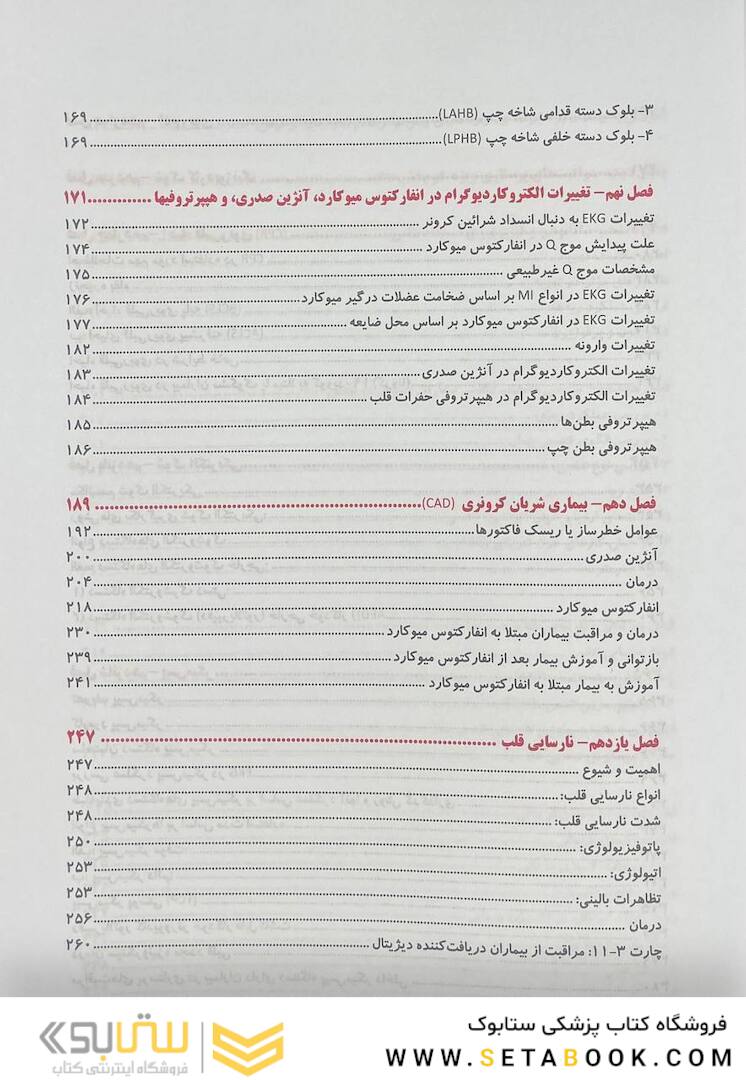 ۳- بلوک دسته قدامی شاخه چپ (LAHB)......۱۶۹
۴- بلوک دسته خلفی شاخه چپ (LPHB)......۱۶۹
فصل نهم- تغییرات الکتروکاردیوگرام در انفارکتوس میوکارد، آنژین صدری، و هیپرتروفیها......۱۷۱
تغییرات EKG به دنبال انسداد شرائین کرونر......۱۷۲
علت پیدایش موج Q در انفارکتوس میوکارد......۱۷۴
مشخصات موج Q غیرطبیعی......۱۷۵
تغییرات EKG در انواع MI بر اساس ضخامت عضلات درگیر میوکارد......۱۷۶
تغییرات EKG در انفارکتوس میوکارد بر اساس محل ضایعه......۱۷۷
تغییرات وارونه......۱۸۲
تغییرات الکتروکاردیوگرام در آنژین صدری......۱۸۳
تغییرات الکتروکاردیوگرام در هیپرتروفی حفرات قلب......۱۸۴
هیپرتروفی بطن‌ها......۱۸۵
هیپرتروفی بطن چپ......۱۸۶
فصل دهم- بیماری شریان کرونری (CAD)......۱۸۹
عوامل خطرساز یا ریسک فاکتورها......۱۹۲
آنژین صدری......۲۰۰
درمان......۲۰۴
انفارکتوس میوکارد......۲۱۸
درمان و مراقبت بیماران مبتلا به انفارکتوس میوکارد......۲۳۰
بازتوانی و آموزش بیمار بعد از انفارکتوس میوکارد......۲۳۹
آموزش به بیمار مبتلا به انفارکتوس میوکارد......۲۴۱
فصل یازدهم- نارسایی قلب......۲۴۷
اهمیت و شیوع......۲۴۷
انواع نارسایی قلب:......۲۴۸
شدت نارسایی قلب:......۲۴۸
پاتوفیزیولوژی:......۲۵۰
اتیولوژی:......۲۵۳
تظاهرات بالینی:......۲۵۳
درمان......۲۵۶
چارت ۳-۱۱: مراقبت از بیماران دریافت‌کننده دیژیتال......۲۶۰
فروشگاه کتاب پزشکی ستابوک
WWW.SETABOOK.COM
ستابوک
فروشگاه اینترنتی کتاب